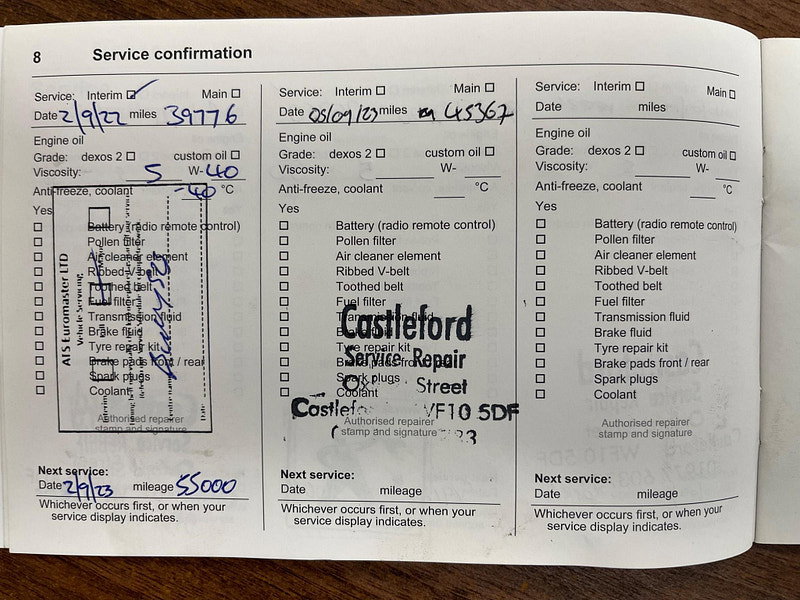 8 Service confirmation
Service: Interim Main
Date 2/9/22 miles 39776
Engine oil
Grade: dexos 2 custom oil
Viscosity: 5 W- 40
Anti-freeze, coolant -40 °C
Yes
Battery (radio remote control)
Pollen filter
Air cleaner element
Ribbed V-belt
Toothed belt
Fuel filter
Transmission fluid
Brake fluid
Tyre repair kit
Brake pads front / rear
Spark plugs
Coolant
ATS Euromaster LTD
Vehicle Servicing
Date:
Authorised repairer
stamp and signature
Next service:
Date 2/9/23 mileage 55000
Whichever occurs first, or when your
service display indicates.
Service: Interim Main
Date 05/09/23 miles 45367
Engine oil
Grade: dexos 2 custom oil
Viscosity: W-
Anti-freeze, coolant °C
Yes
Battery (radio remote control)
Pollen filter
Air cleaner element
Ribbed V-belt
Toothed belt
Fuel filter
Transmission fluid
Brake fluid
Tyre repair kit
Brake pads front / rear
Spark plugs
Coolant
Castleford
Service Repair
Street
WF10 5DF
Authorised repairer
stamp and signature
Next service:
Date mileage
Whichever occurs first, or when your
service display indicates.
Service: Interim Main
Date miles
Engine oil
Grade: dexos 2 custom oil
Viscosity: W-
Anti-freeze, coolant °C
Yes
Battery (radio remote control)
Pollen filter
Air cleaner element
Ribbed V-belt
Toothed belt
Fuel filter
Transmission fluid
Brake fluid
Tyre repair kit
Brake pads front / rear
Spark plugs
Coolant
Authorised repairer
stamp and signature
Next service:
Date mileage
Whichever occurs first, or when your
service display indicates.